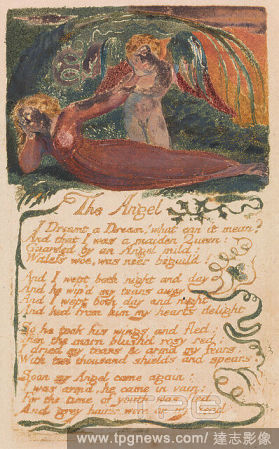 The Angel
I Dreamt a Dream! what can it mean?
And that I was a maiden Queen:
Guarded by an Angel mild:
Witless woe, was neer beguil'd!
And I wept both night and day
And he wip'd my tears away
And I wept both day and night
And hid from him my hearts delight
So he took his wings and fled:
Then the morn blush'd rosy red:
I dried my tears & armd my fears,
With ten thousand shields and spears.
Soon my Angel came again:
I was arm'd, he came in vain:
For the time of youth was fled
And grey hairs were on my head
www.tpgnews.com/ 達志影像